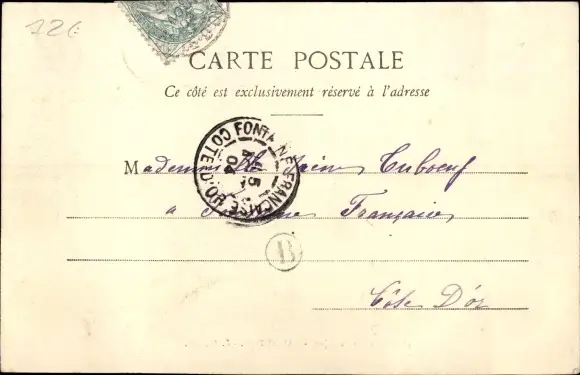 126
CARTE POSTALE
Ce côté est exclusivement réservé à l'adresse
FONTAINE-FRANÇAISE
CÔTE-D'OR
15
4
04
Mademoiselle
à Fontaine Française
B
Côte D'or